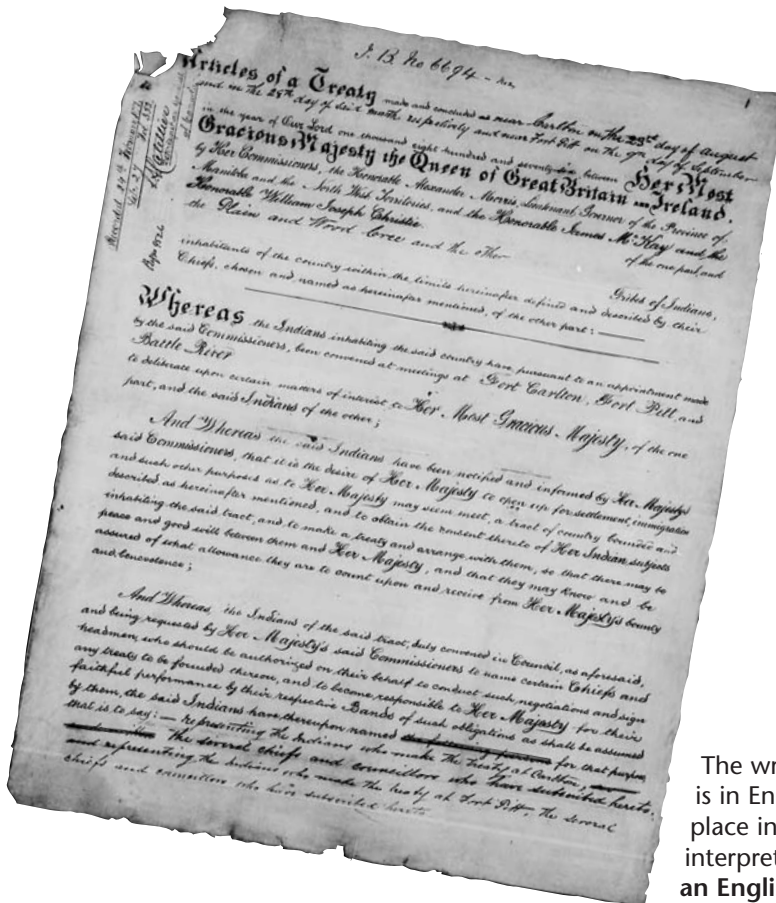 I. B. No 6694
Articles of a Treaty made and concluded at near Carlton on the 23rd day of August
and on the 28th day of said month respectively and near Fort Pitt on the 9th day of September
in the year of Our Lord one thousand eight hundred and seventy-six between Her Most
Gracious Majesty the Queen of Great Britain and Ireland,
by Her Commissioners, the Honorable Alexander Morris, Lieutenant Governor of the Province of
Manitoba and the North West Territories, and the Honorable James McKay and the
Honorable William Joseph Christie of the one part, and
the Plain and Wood Cree and the Other Tribes of Indians,
inhabitants of the country within the limits hereinafter defined and described by their
Chiefs, chosen and named as hereinafter mentioned, of the other part:
Whereas the Indians inhabiting the said country have pursuant to an appointment made
by the said Commissioners, been convened at meetings at Fort Carlton, Fort Pitt, and
Battle River
to deliberate upon certain matters of interest to Her Most Gracious Majesty, of the one
part, and the said Indians of the other;
And Whereas the said Indians have been notified and informed by Her Majesty's
said Commissioners, that it is the desire of Her Majesty to open up for settlement, immigration
and such other purposes as to Her Majesty may seem meet, a tract of country bounded and
described as hereinafter mentioned, and to obtain the consent thereto of Her Indian subjects
inhabiting the said tract, and to make a treaty and arrange with them, so that there may be
peace and good will between them and Her Majesty, and that they may know and be
assured of what allowance they are to count upon and receive from Her Majesty's bounty
and benevolence;
And Whereas the Indians of the said tract, duly convened in Council, as aforesaid,
and being requested by Her Majesty's said Commissioners to name certain Chiefs and
headmen, who should be authorized on their behalf to conduct such negotiations and sign
any treaty to be founded thereon, and to become responsible to Her Majesty for their
faithful performance by their respective Bands of such obligations as shall be assumed
by them, the said Indians have thereupon named for that purpose,
that is to say:— representing the Indians who make the treaty at Carlton,
the several chiefs and councillors who have subscribed hereto,
and representing the Indians who make the treaty at Fort Pitt, the several
chiefs and councillors who have subscribed hereto
The wr
is in En
place in
interpret
an Engli